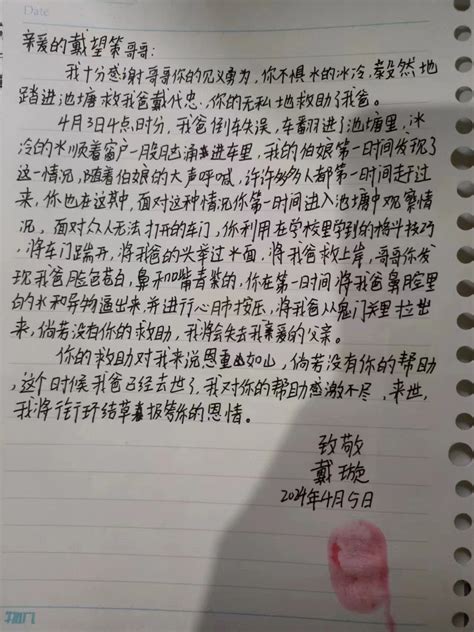 Date
亲爱的戴望策哥哥:
我十分感谢哥哥你的见义勇为,你不惧水的冰冷,毅然地
踏进池塘救我爸戴代忠,你的无私地救助了我爸。
4月3日4点时分,我爸倒车失误,车翻进了池塘里,冰
冷的水顺着窗户一股脑涌进车里,我的伯娘第一时间发现了
这一情况,随着伯娘的大声呼喊,许许多多人都第一时间赶过
来,你也在这其中,面对这种情况你第一时间进入池塘中观察情
况,面对众人无法打开的车门,你利用在学校里学到的格斗技巧
,将车门踹开,将我爸的头举过水面,将我爸救上岸,哥哥你发
现我爸脸色苍白,鼻和嘴青紫的,你在第一时间将我爸鼻腔里
的水和异物逼出来,并进行心肺按压,将我爸从鬼门关里拉出
来,倘若没有你的救助,我将会失去我亲爱的父亲。
你的救助对我来说恩重如山,倘若没有你的帮助
,这个时候我爸已经去世了,我对你的帮助感激不尽,来世,
我将衔环结草喜报答你的恩情。
致敬
戴璇
2024年4月5日